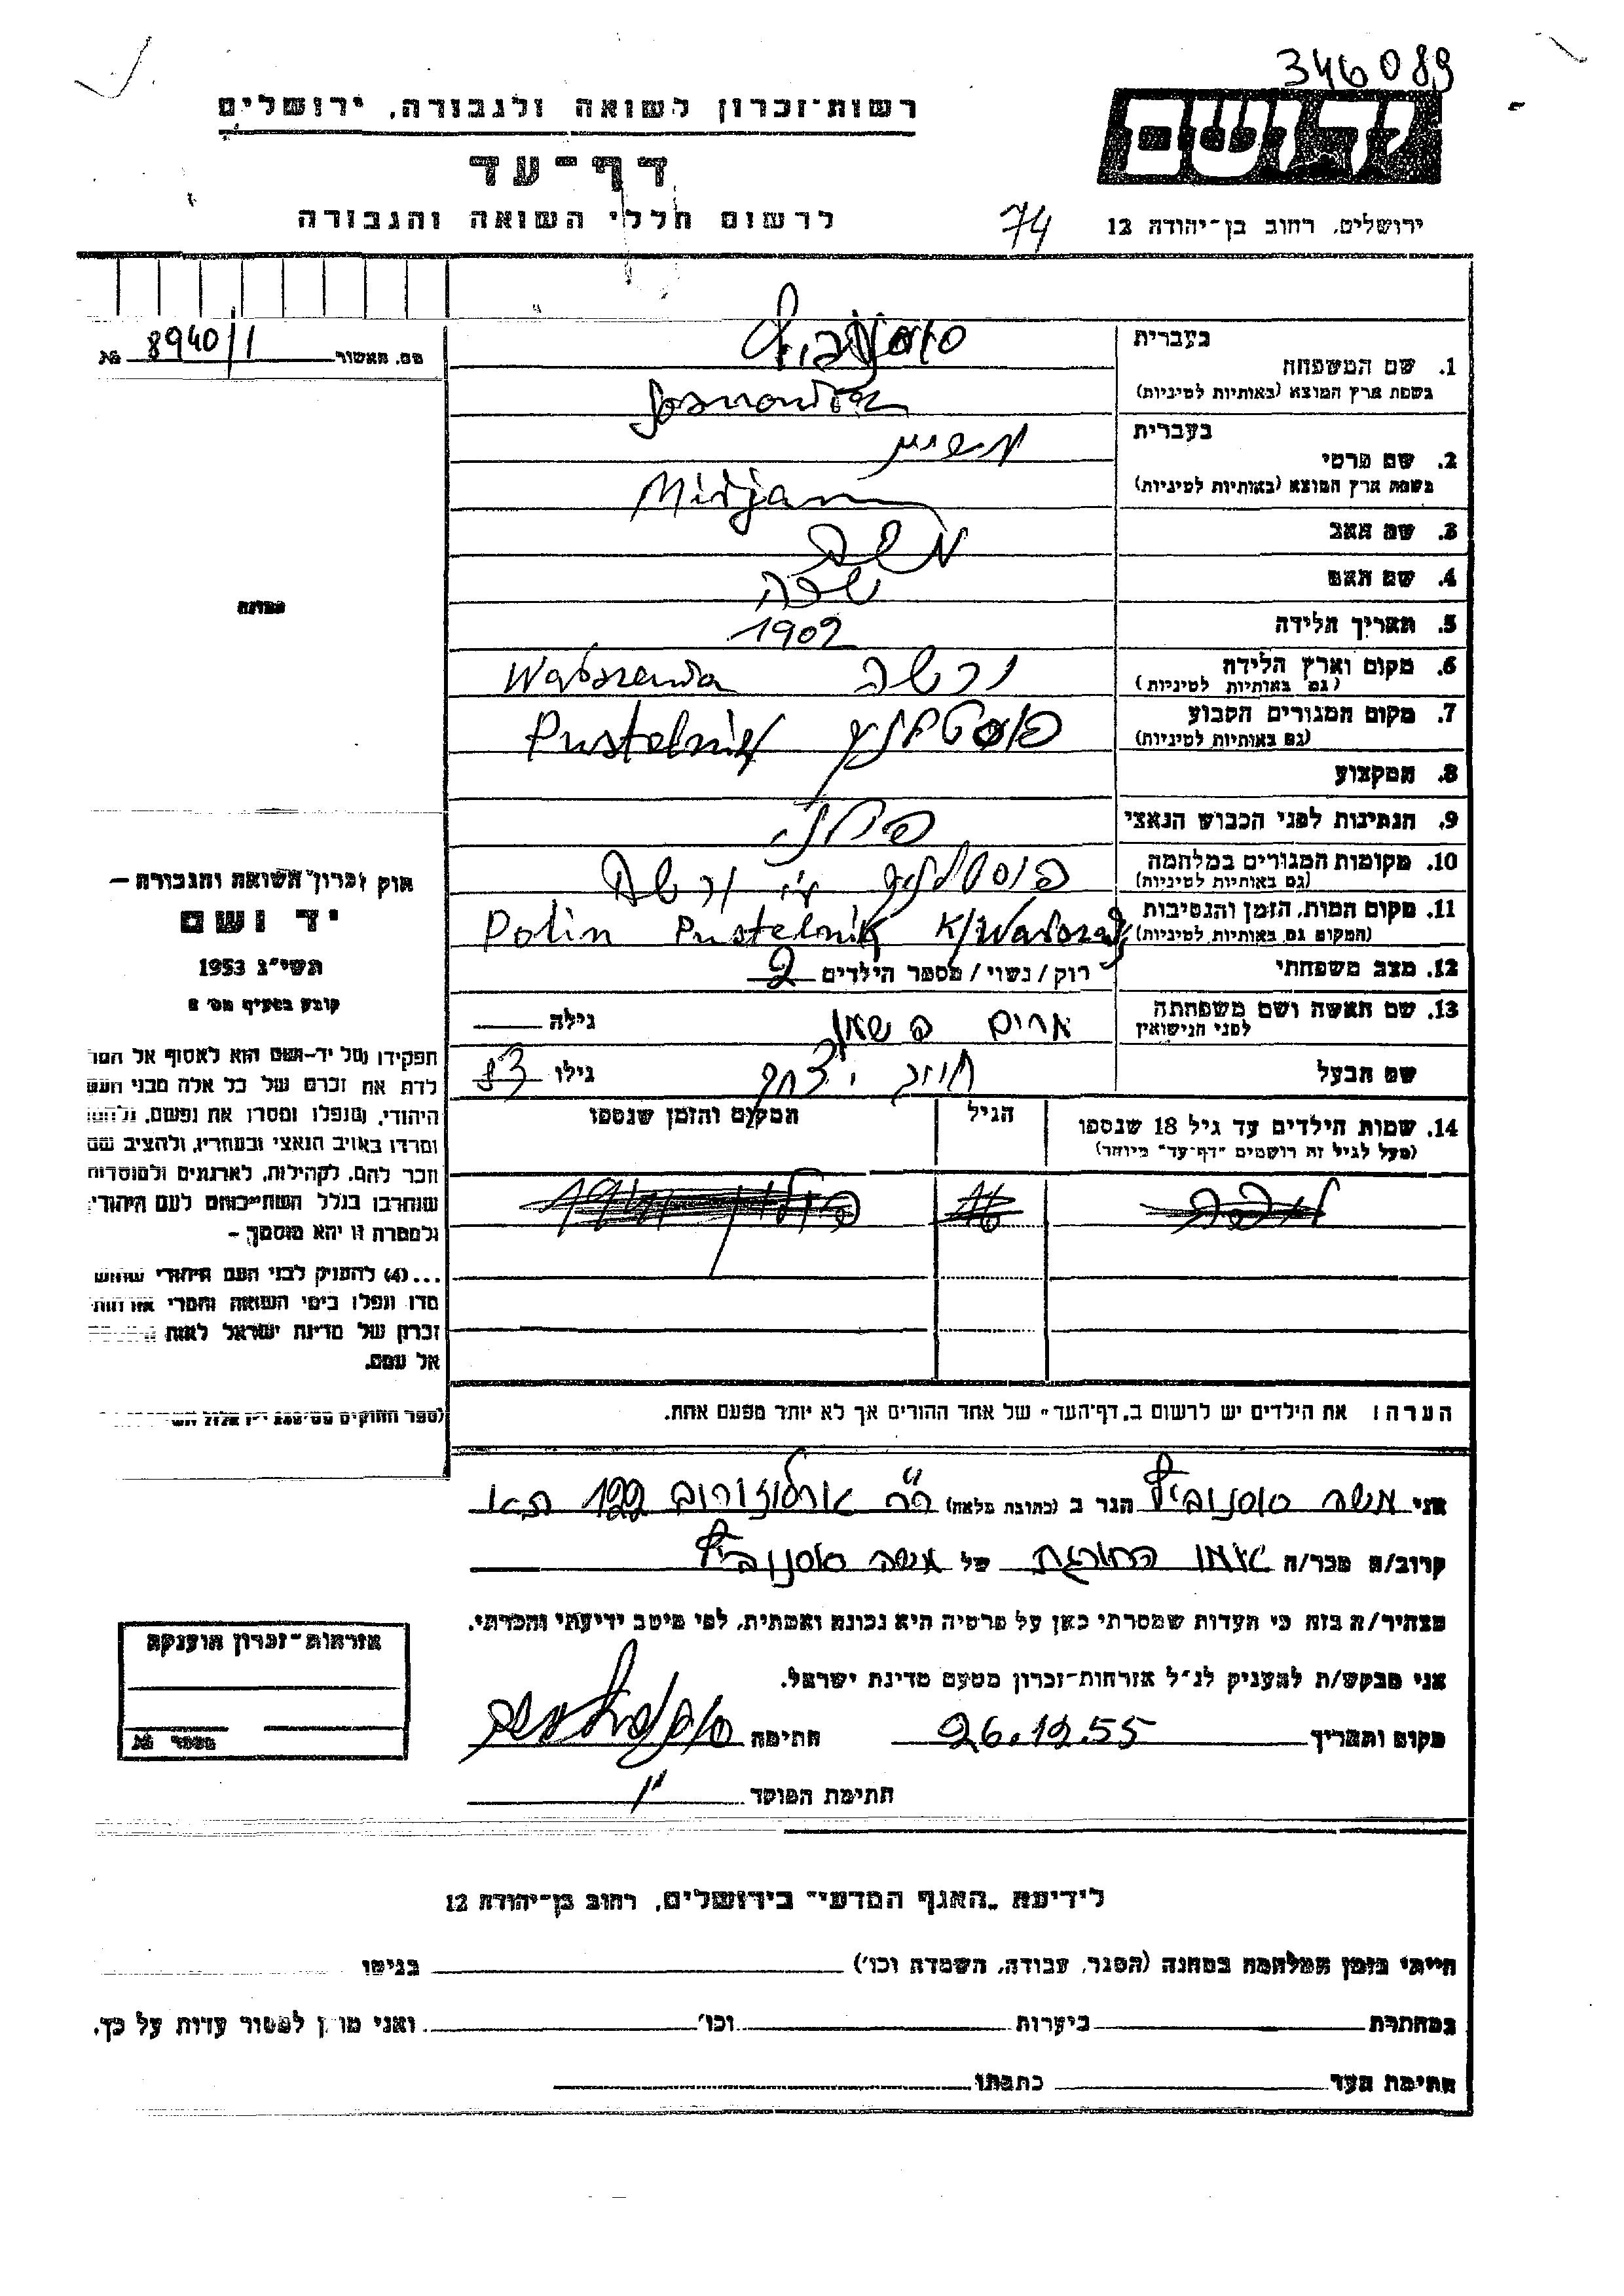 346089
רשות-זכרון לשואה ולגבורה, ירושלים
יד ושם
דף-עד
לרשום חללי השואה והגבורה
74
ירושלים, רחוב בן-יהודה 12
מס. מאשור 8940/1 №
בעברית סוסנוביץ
1. שם המשפחה
בשפת ארץ המוצא (באותיות לטיניות) Sosnowicz
בעברית מרים
2. שם פרטי
בשפת ארץ המוצא (באותיות לטיניות) Mirjam
3. שם האב משה
4. שם האם
5. תאריך הלידה 1902
6. מקום וארץ הלידה ורשה Warszawa
(גם באותיות לטיניות)
7. מקום המגורים הקבוע Pustelnik
(גם באותיות לטיניות)
8. המקצוע
9. הנתינות לפני הכבוש הנאצי
10. מקומות המגורים במלחמה ורשה
(גם באותיות לטיניות)
11. מקום המות, הזמן והנסיבות Polin Pustelnik K/Warszawy
(המקום גם באותיות לטיניות)
12. מצב משפחתי רוק/נשוי/מספר הילדים 2
13. שם האשה ושם משפחתה גילה
לפני הנישואין
שם הבעל יצחק גילו 53
14. שמות הילדים עד גיל 18 שנספו הגיל המקום והזמן שנספו
(מעל לגיל זה רושמים "דף-עד" מיוחד)
הערה: את הילדים יש לרשום ב"דף-העד" של אחד ההורים אך לא יותר מפעם אחת.
תמונה
חוק זכרון השואה והגבורה —
יד ושם
תשי"ג 1953
קובע בסעיף מס' 2
תפקידו של יד-ושם הוא לאסוף אל המו
לדת את זכרם של כל אלה מבני העם
היהודי, שנפלו ומסרו את נפשם, נלחמו
ומרדו באויב הנאצי ובעוזריו, ולהציב שם
וזכר להם, לקהילות, לארגונים ולמוסדות
שנחרבו בגלל השתייכותם לעם היהודי;
ולמטרת זו יהא מוסמך —
...(4) להעניק לבני העם היהודי שהוש
מדו ונפלו בימי השואה והמרי אזרחות
זכרון של מדינת ישראל לאות
אל עמם.
אני משה סוסנוביץ הגר ב (כתובת מלאה) רח' ארלוזורוב 122 ת"א
קרוב/ה מכר/ה אמו החורגת של משה סוסנוביץ
מצהיר/ה בזה כי העדות שמסרתי כאן על פרטיה היא נכונה ואמתית, לפי מיטב ידיעתי והכרתי.
אני מבקש/ת להעניק לנ"ל אזרחות-זכרון מטעם מדינת ישראל.
מקום ותאריך 26.12.55 חתימה
חתימת הפוקד
אזרחות-זכרון הוענקה
מספר №
לידיעת "האגף המדעי" בירושלים, רחוב בן-יהודה 12
הייתי בזמן המלחמה במחנה (הסגר, עבודה, השמדה וכו') בגיטו
במחתרת ביערות וכו' ואני מוכן למסור עדות על כך.
חתימת העד כתבתו